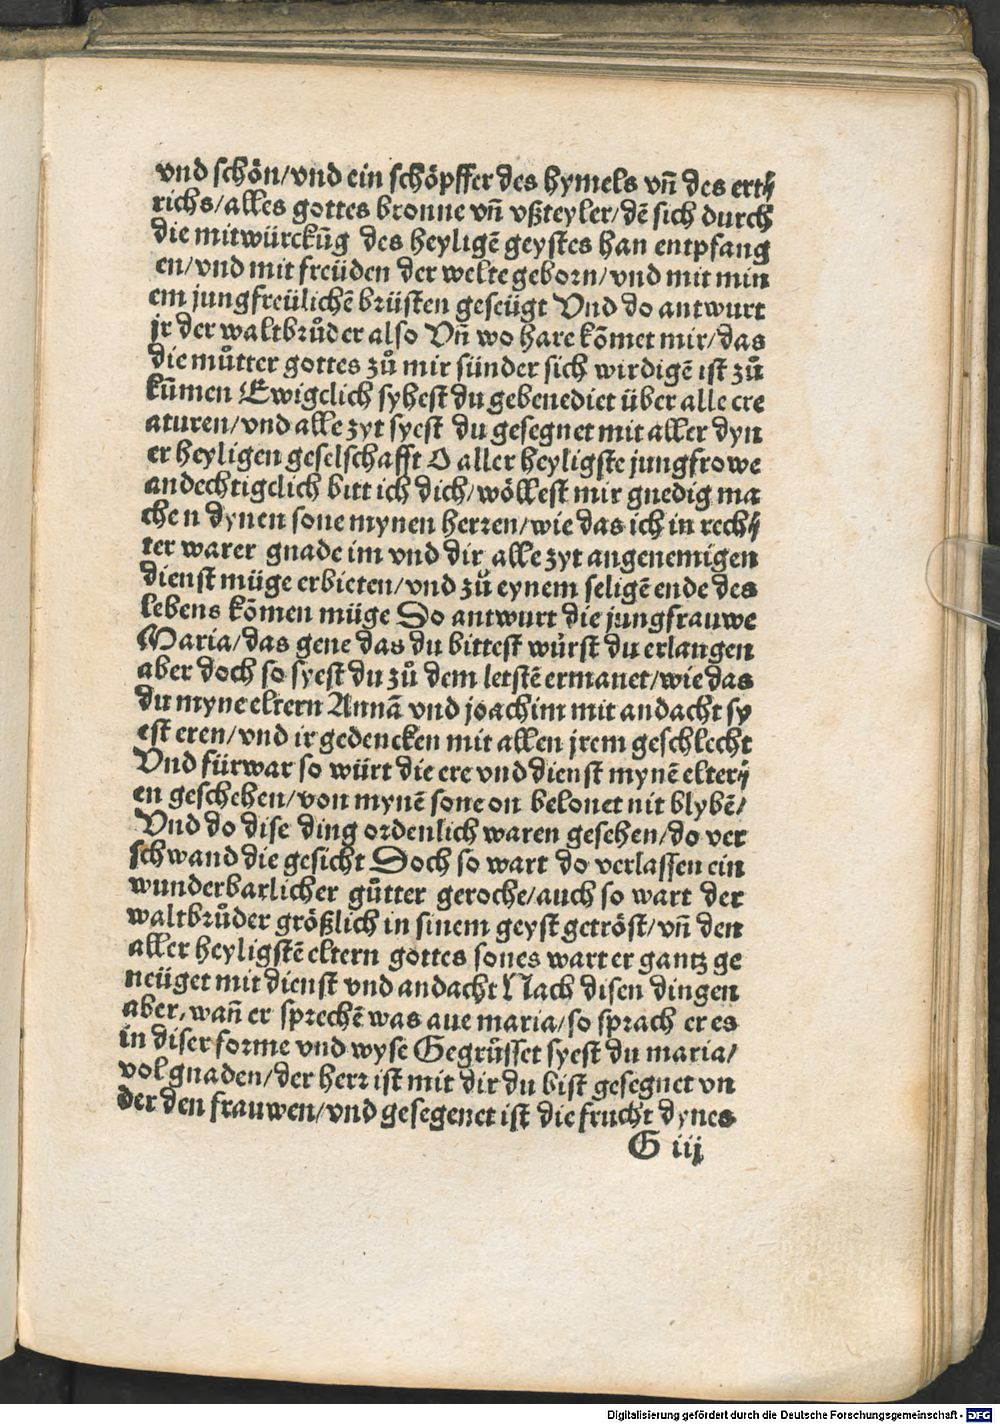 vnd schön/vnd ein schöpffer des hymels vn̄ des ertij
richs/alles gottes bronne vn̄ vßteyler/dē sich durch
die mitwürckūg des heyligē geystes han entpfang
en/vnd mit freüden der welte geborn/vnd mit min
em jungfreülichē brüsten geseügt Vnd do antwurt
jr der waltbrůder also Vn̄ wo hare kōmet mir/das
die můtter gottes zů mir sünder sich wirdigē ist zů
kūmen Ewigclich syhest du gebenediet über alle cre
aturen/vnd alle zyt syest du gesegnet mit aller dyn
er heyligen geselschafft O aller heyligste jungfrowe
andechtigclich bitt ich dich/wöllest mir gnedig ma
chen dynen sone mynen herren/wie das ich in rechij
ter warer gnade im vnd dir alle zyt angenemigen
dienst müge erbieten/vnd zů eynem seligē ende des
lebens kōmen müge So antwurt die jungfrauwe
Maria/das gene das du bittest würst du erlangen
aber doch so syest du zů dem letstē ermanet/wie das
du myne eltern Annā vnd joachim mit andacht sy
est eren/vnd ir gedencken mit allen jrem geschlecht
Vnd fürwar so würt die ere vnd dienst mynē elterij
en geschehen/von mynē sone on belonet nit blybē/
Vnd do dise ding ordenlich waren gesehen/do ver
schwand die gesicht Doch so wart do verlassen ein
wunderbarlicher gůtter geroche/auch so wart der
waltbrůder größlich in sinem geyst getröst/vn̄ den
aller heyligstē eltern gottes sones wart er gantz ge
neüget mit dienst vnd andacht Nach disen dingen
aber, wan̄ er sprechē was aue maria/so sprach er es
in diser forme vnd wyse Gegrůsset syest du maria/
vol gnaden/der herr ist mit dir du bist gesegnet vn
der den frauwen/vnd gesegenet ist die frucht dynes
G iij
Digitalisierung gefördert durch die Deutsche Forschungsgemeinschaft - DFG